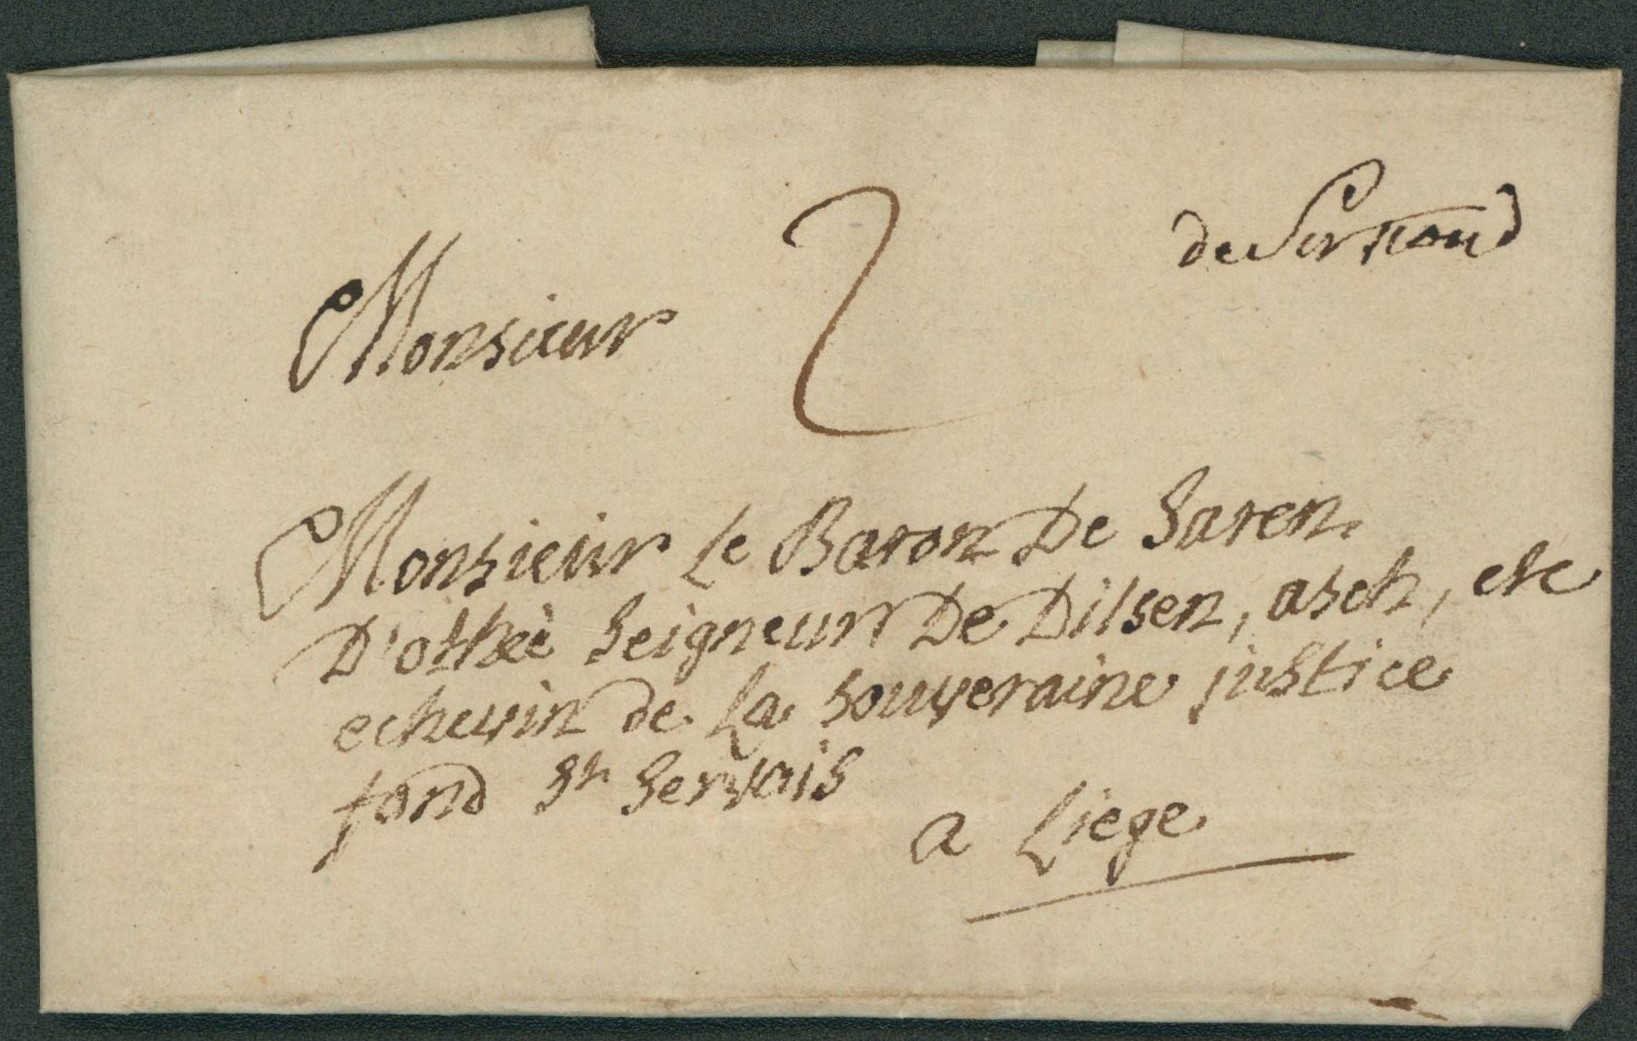 de St trond
2
Monsieur
Monsieur Le Baron De Haren
D'othéé seigneur De Dilsen, asch, etc
echevin de La souveraine justice
fond St Servais
a Liege